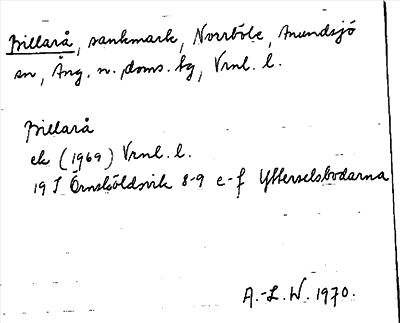 Billarå, sankmark, Norrböle, Anundsjö
sn, Ång. n. doms. hg, Vrnl. l.
Billarå
ek (1969) Vrnl. l.
19 I Örnsköldsvik 8-9 e-f Ytterselsbodarna
A.-L. W. 1970.